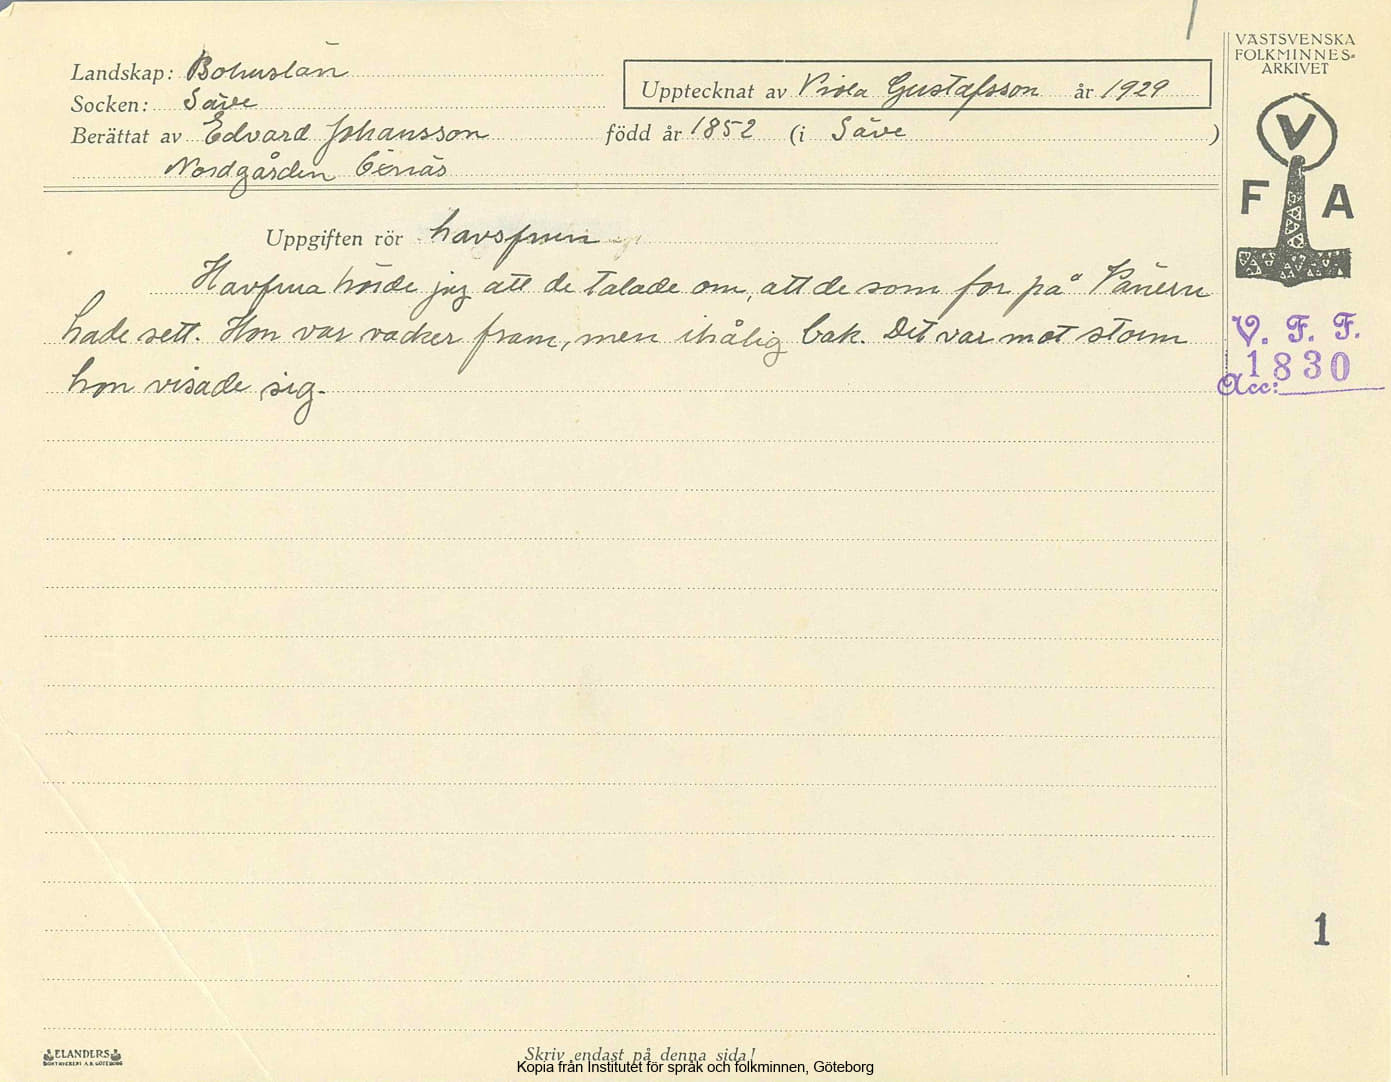 VÄSTSVENSKA
FOLKMINNES-
ARKIVET
V
F A
Landskap: Bohuslän
Socken: Säve
Upptecknat av Viola Gustafsson år 1929
Berättat av Edvard Johansson född år 1852 (i Säve )
Nordgården
Uppgiften rör havsfrun
Havfrua hörde jag att de talade om, att de som for på Vänern
hade sett. Hon var vacker fram, men ihålig bak. Det var mot storm
hon visade sig.
V. F. F.
1830
Acc:
1
ELANDERS
BOKTRYCKERI A.B. GÖTEBORG
Skriv endast på denna sida!
Kopia från Institutet för språk och folkminnen, Göteborg